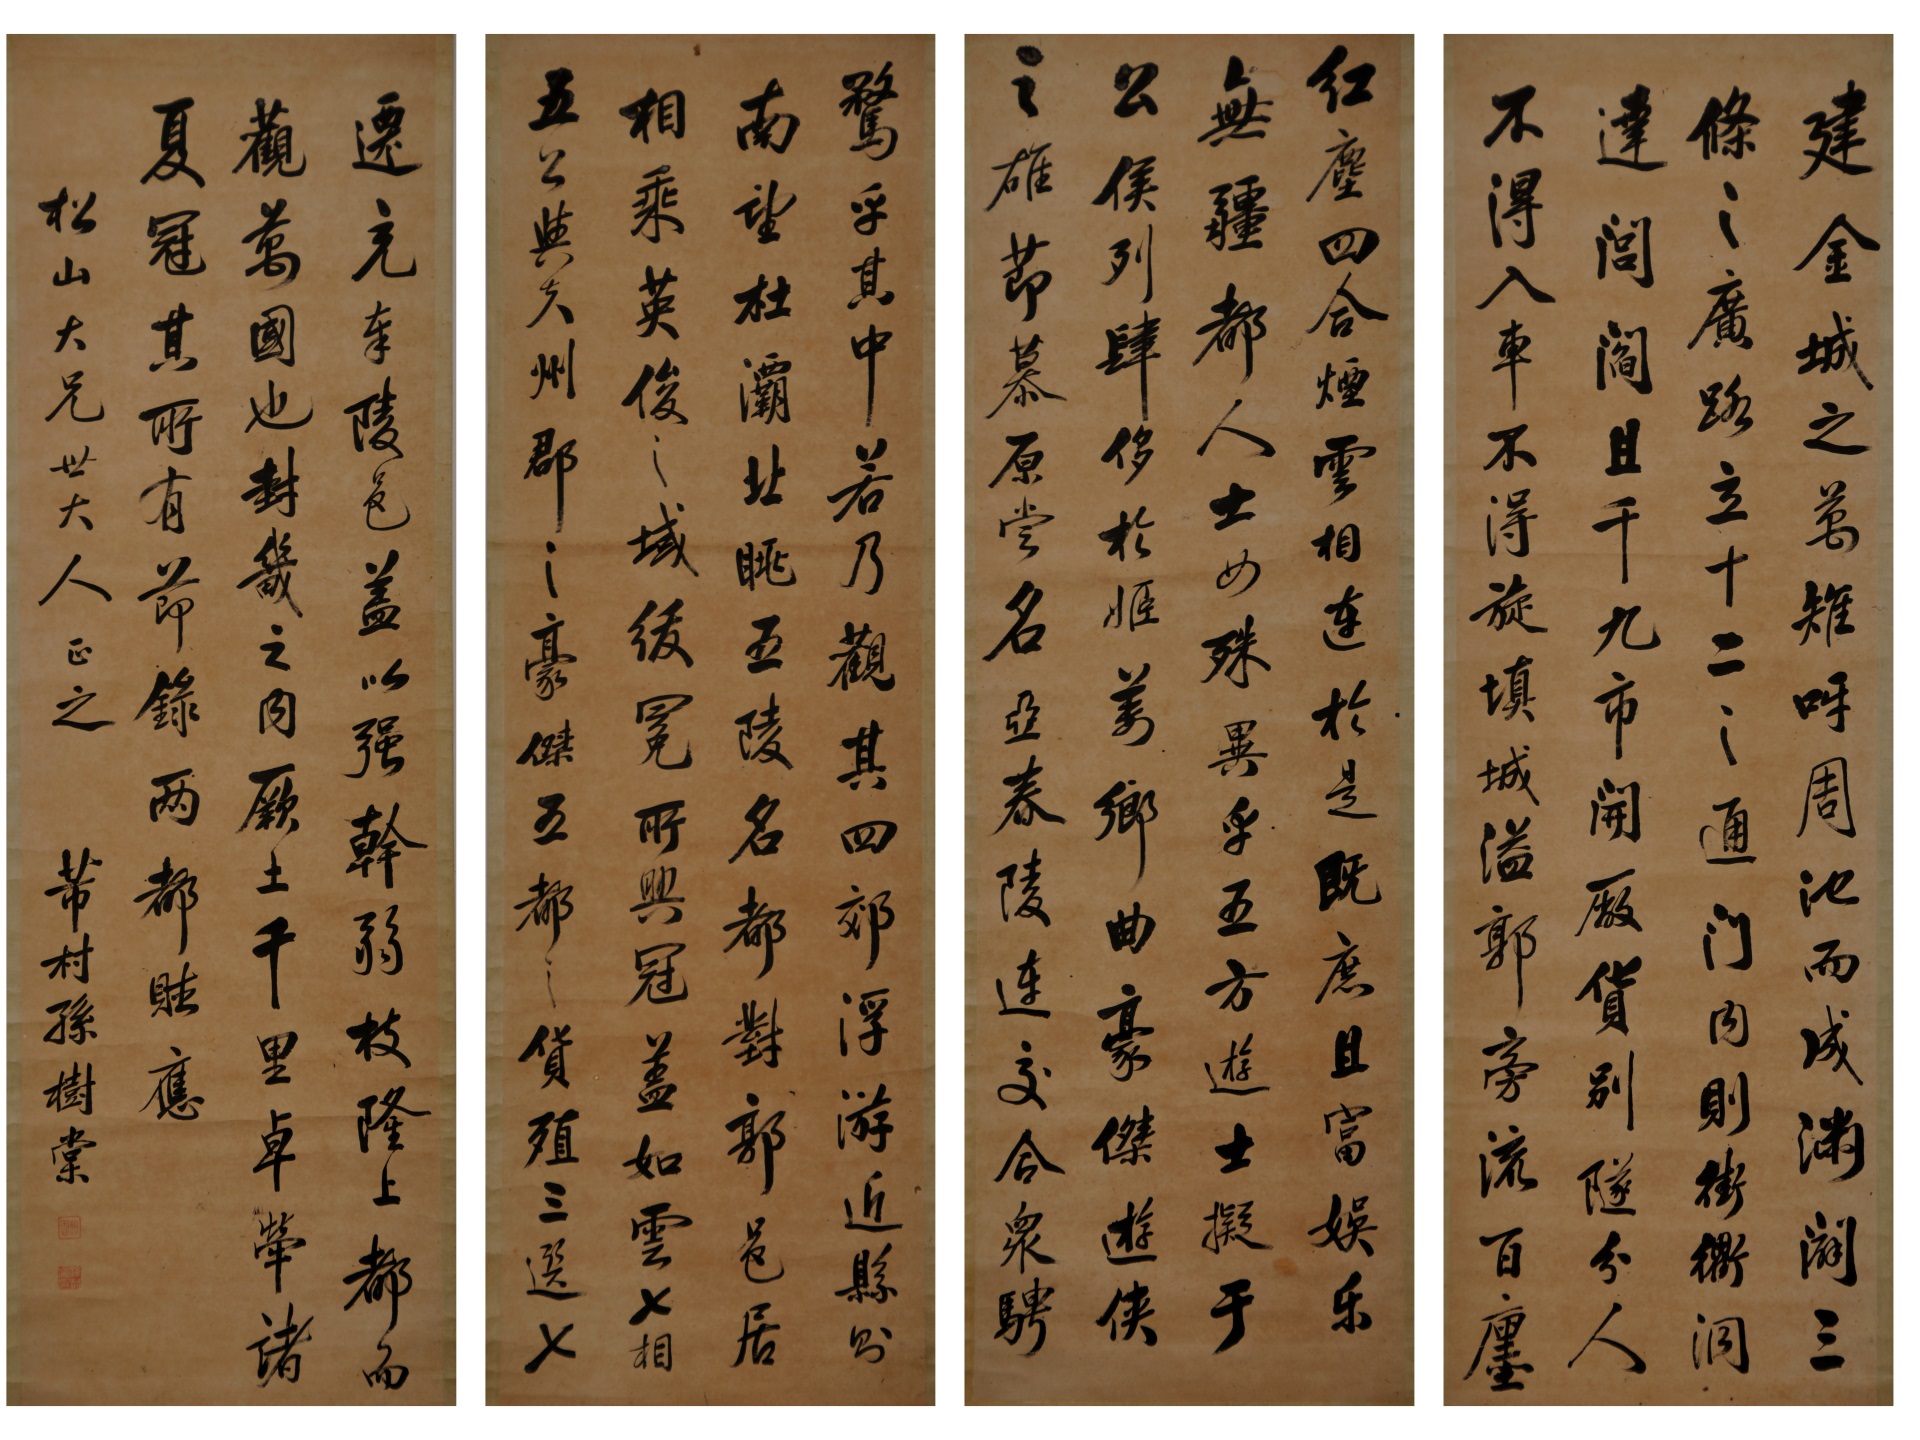 建金城之萬雉呀周池而成渊闢三
條之廣路立十二之通门内則街衢洞
達閭閻且千九市開廠貨别隧分人
不得入車不得旋填城溢郭旁流百廛
红塵四合煙雲相连於是既庶且富娱乐
無疆都人士女殊異乎五方遊士擬于
公侯列肆侈於姬姜鄉曲豪傑遊侠
之雄節慕原尝名亞春陵连交合衆騁
騖乎其中若乃觀其四郊浮游近縣则
南望杜灞北眺五陵名都對郭邑居
相乘英俊之域绂冕所興冠蓋如雲七相
五公與夫州郡之豪傑五都之貨殖三选七
遷充奉陵邑盖以强幹弱枝隆上都而
觀萬國也封畿之内厥土千里卓犖諸
夏冠其所有節錄两都赋應
松山大兄世大人正之
芾村孫樹棠